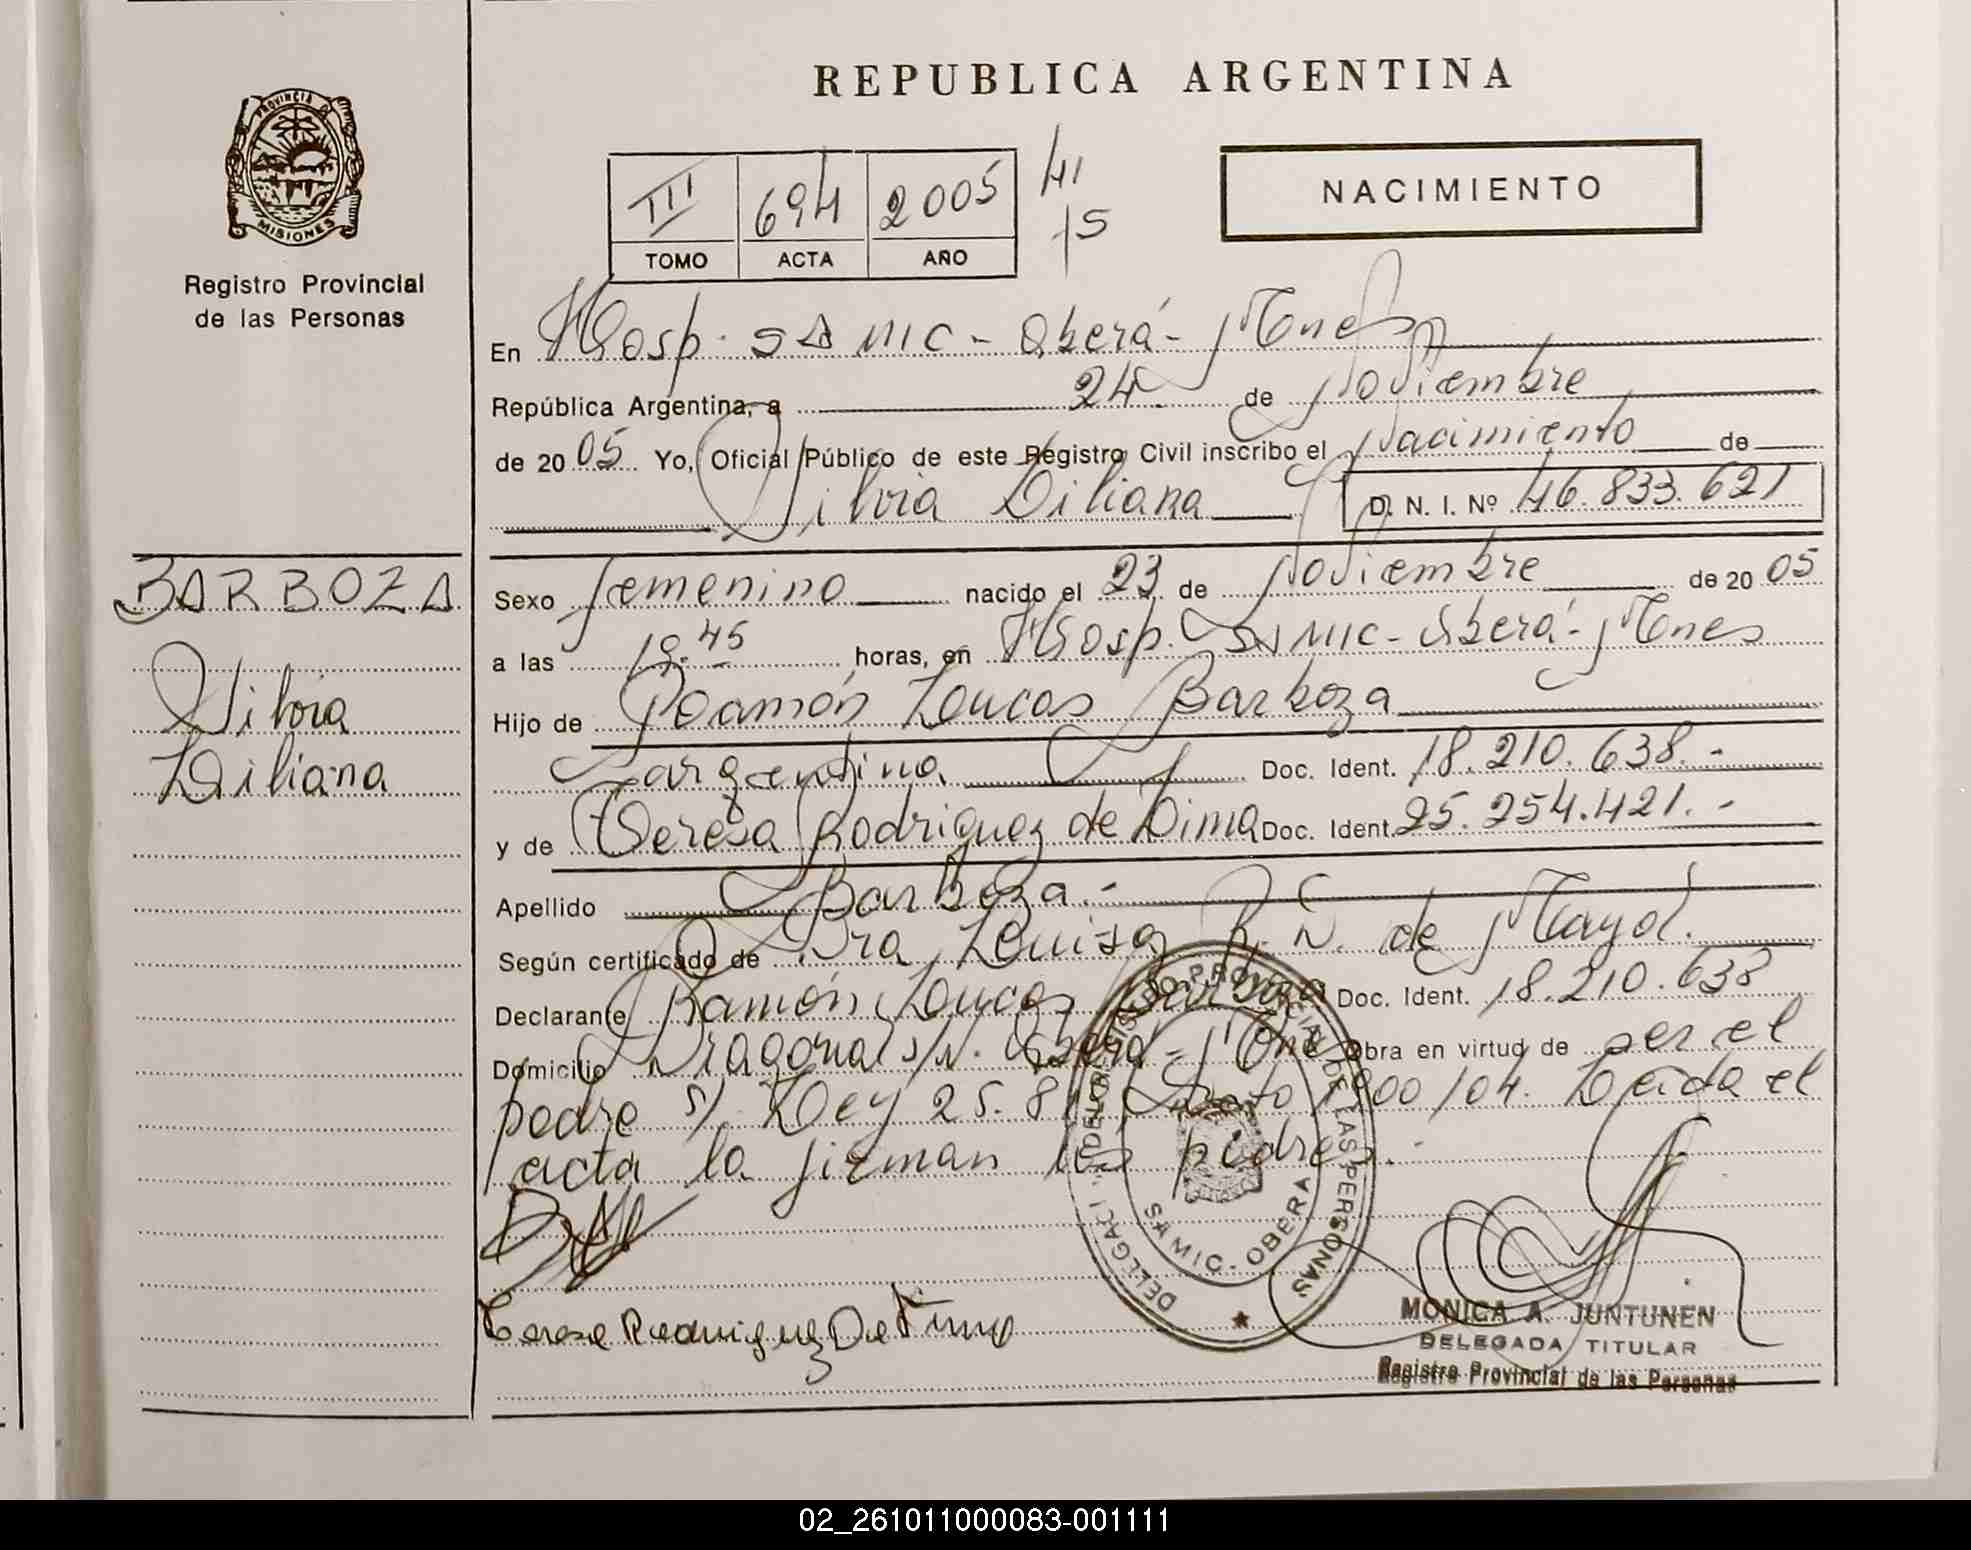 REPUBLICA ARGENTINA
PROVINCIA DE
MISIONES
Registro Provincial
de las Personas
III 694 2005 41
TOMO ACTA AÑO 15
NACIMIENTO
En Hosp. SAMIC - Oberá - Mnes
República Argentina, a 24 de Noviembre
de 20 05 Yo, Oficial Público de este Registro Civil inscribo el Nacimiento de
Silvia Liliana D. N. I. Nº 46.833.621
BARBOZA
Silvia
Liliana
Sexo femenino nacido el 23 de Noviembre de 20 05
a las 19.45 horas, en Hosp. SAMIC - Oberá - Mnes
Hijo de Ramón Lucas Barboza
argentina Doc. Ident. 18.210.638.-
y de Teresa Rodriguez de Lima Doc. Ident. 25.254.421.-
Apellido Barboza.-
Según certificado de Dra Luisa R. N. de Mayol.
Declarante Ramón Lucas Barboza Doc. Ident. 18.210.638
Domicilio s/N. Oberá - Mnes Obra en virtud de ser el
padre s/ Ley 25.819 Dto 1900/04. Leida el
acta la firman los padres.-
Teresa Rodriguez De Lima
DELEGACI REGISTRO PROVINCIAL DE LAS PERSONAS
SAMIC - OBERA
MONICA A. JUNTUNEN
DELEGADA TITULAR
Registro Provincial de las Personas
02_261011000083-001111